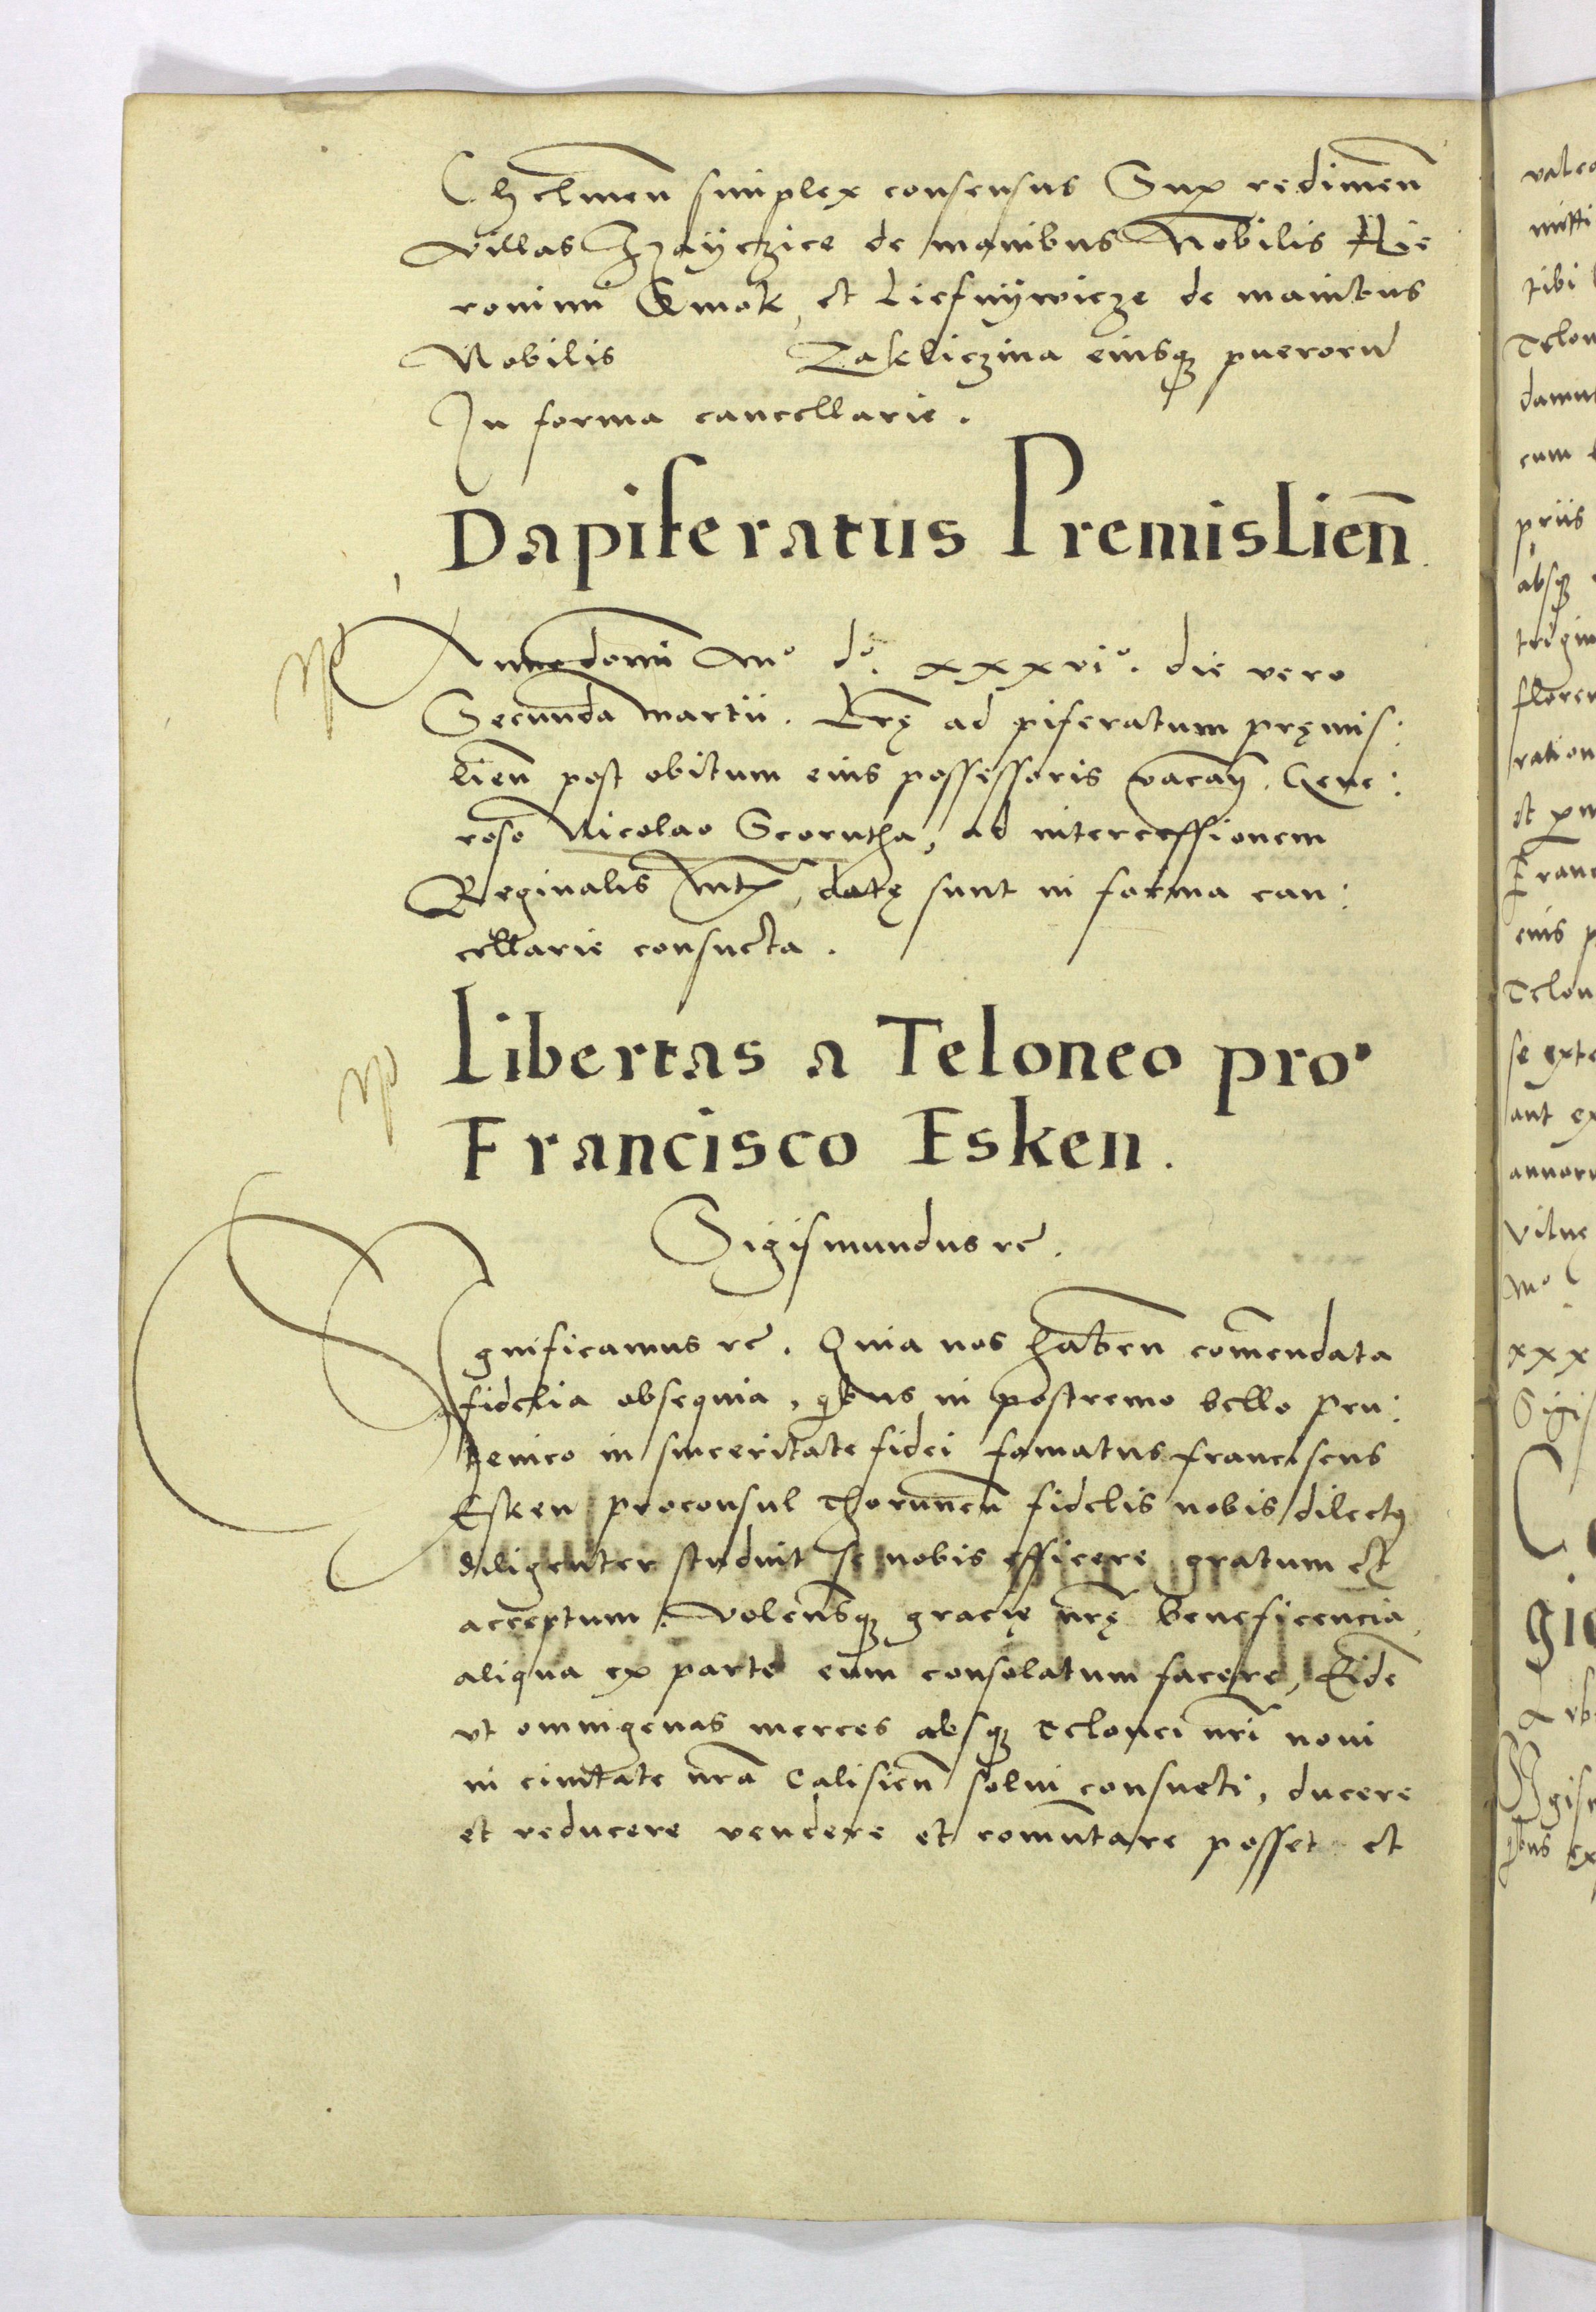 Chelmen̄ simplex consensus Sup redimen̄
villas Izayczice de manibus Nobilis Hie
ronimi Gmok, et Liesnywicze de manibus
Nobilis Zakliczina eiusqꝫ puerorū
In forma cancellarie.
Dapiferatus Premislien̄.
Anno domī Mº dº. xxxviº. die vero
Secunda martii. Lrę ad piferatum pręmis:
lien̄ post obitum eius possessoris vacan̄. Gene:
roso Nicolao Scorutha, ad intercessionem
Reginalis Mtis, datę sunt in forma can:
cellarie consueta.
Libertas a Teloneo pro
Francisco Esken.
Sigismundus rc̄.
Significamus rc̄. Quia nos haben̄ com̄endata
fidelia obsequia, qbus in postremo bello pru:
tenico in sinceritate fidei famatus franciscus
Esken proconsul Thorunen̄ fidelis nobis dilectꝰ
diligenter studuit se nobis efficere gratum et
acceptum. Volensqꝫ gracię nrę beneficencia
aliqua ex parte eum consolatum facere, Eidē
vt omnigenas merces absqꝫ teloneí nrī noui
in ciuitate nrā Calisien̄ solui consueti, ducere
et reducere vendere et com̄utare posset et
valeat
mitti
tibi
Telon
damus
cum
priis
absqꝫ
trigin
floren
ration
et
Franc
eius p
Telon
se exte
aut ex
annoru
Mº
xxx
Sigis
gie